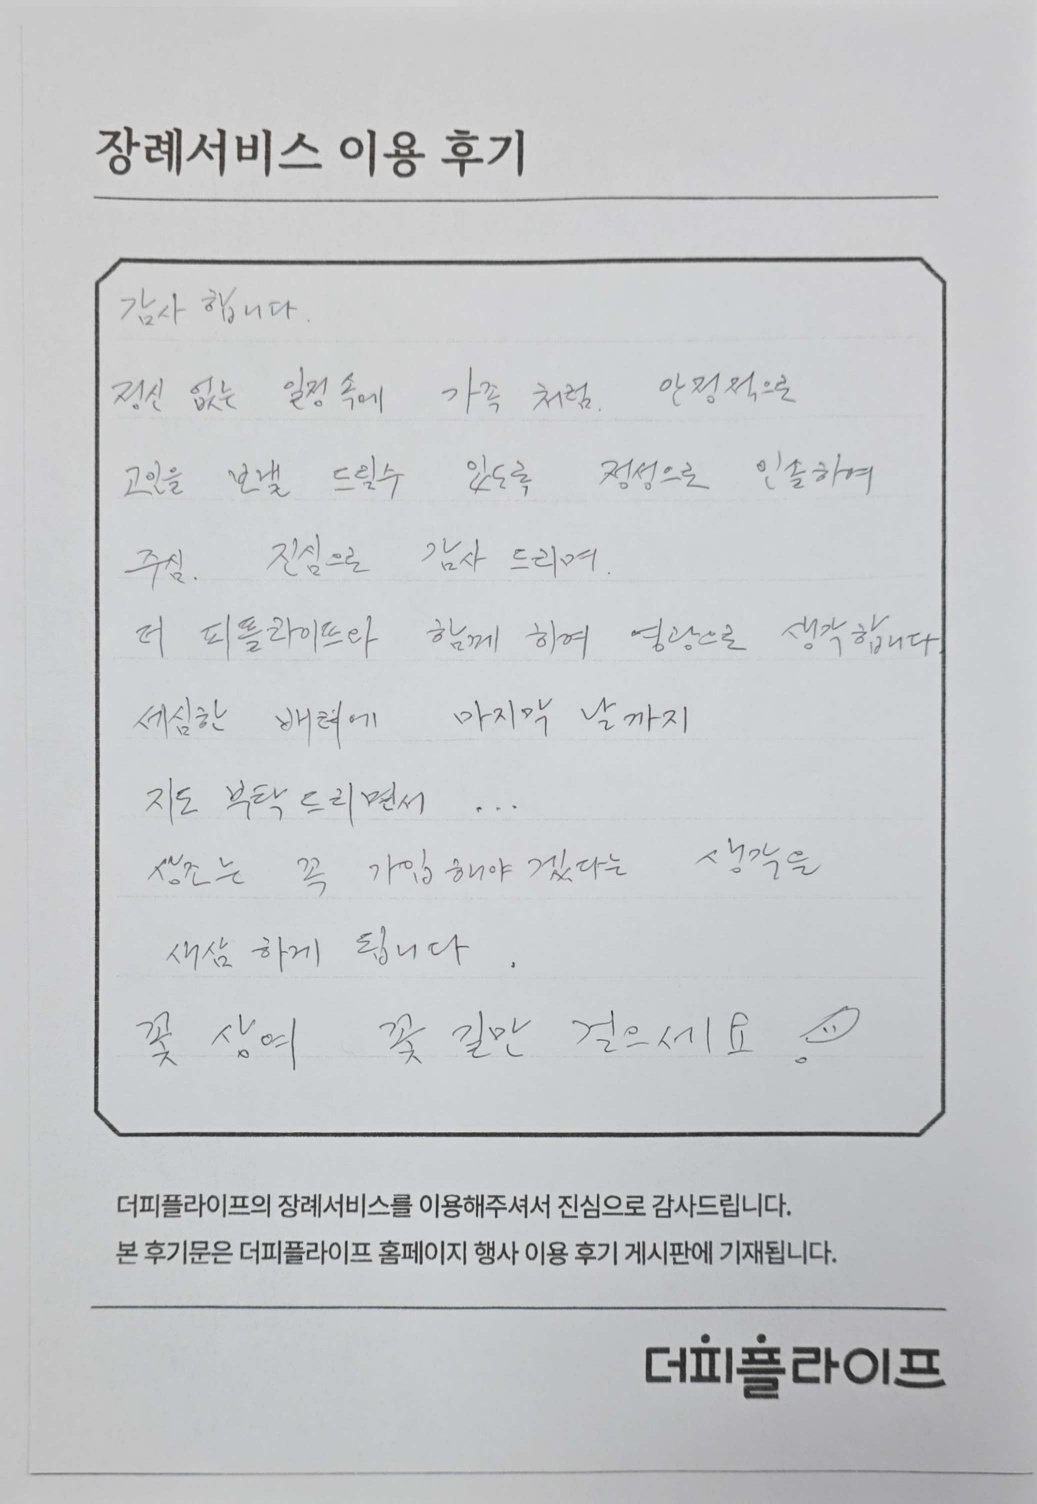 장례서비스 이용 후기
감사 합니다.
정신 없는 일정 속에 가족 처럼. 안정적으로
고인을 보낼 드릴수 있도록 정성으로 인솔하여
주심. 진심으로 감사 드리며.
더 피플라이프와 함께 하여 영광으로 생각합니다.
세심한 배려에 마지막 날까지
지도 부탁드리면서 ...
상조는 꼭 가입해야 겠다는 생각을
새삼 하게 됩니다.
꽃 상여 꽃 길만 걸으세요
더피플라이프의 장례서비스를 이용해주셔서 진심으로 감사드립니다.
본 후기문은 더피플라이프 홈페이지 행사 이용 후기 게시판에 기재됩니다.
더피플라이프